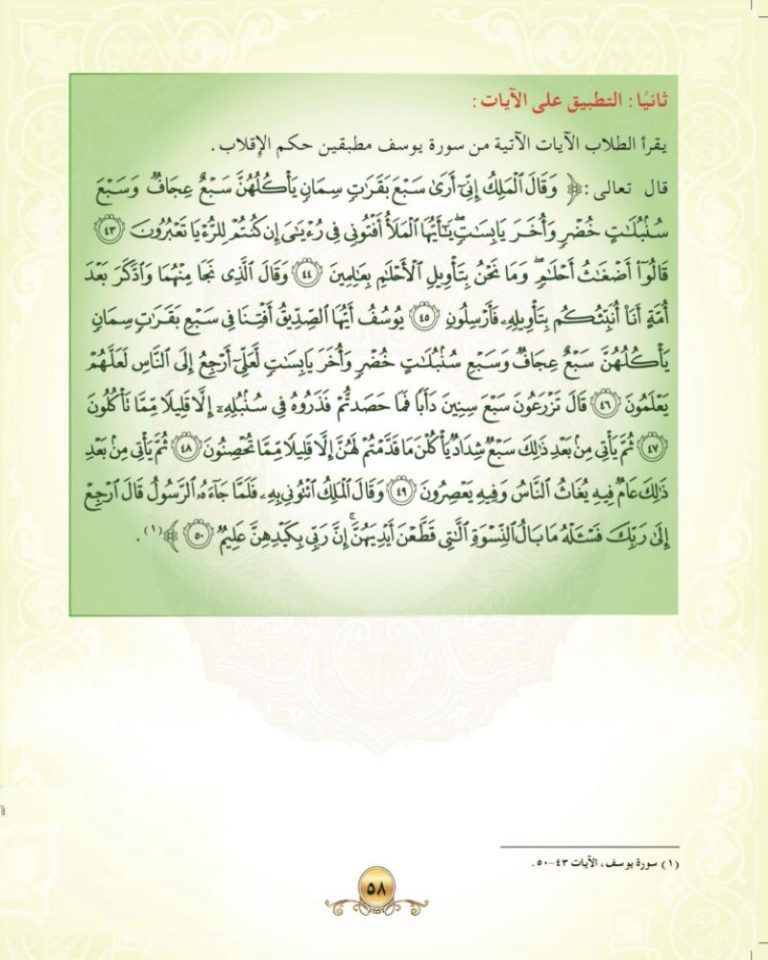 ثانيًا: التطبيق على الآيات:
يقرأ الطلاب الآيات الآتية من سورة يوسف مطبقين حكم الإقلاب.
قال تعالى: ﴿ وَقَالَ ٱلْمَلِكُ إِنِّىٓ أَرَىٰ سَبْعَ بَقَرَٰتٍ سِمَانٍ يَأْكُلُهُنَّ سَبْعٌ عِجَافٌ وَسَبْعَ
سُنۢبُلَٰتٍ خُضْرٍ وَأُخَرَ يَابِسَٰتٍ ۖ يَٰٓأَيُّهَا ٱلْمَلَأُ أَفْتُونِى فِى رُءْيَٰىَ إِن كُنتُمْ لِلرُّءْيَا تَعْبُرُونَ ٤٣
قَالُوٓا۟ أَضْغَٰثُ أَحْلَٰمٍ ۖ وَمَا نَحْنُ بِتَأْوِيلِ ٱلْأَحْلَٰمِ بِعَٰلِمِينَ ٤٤ وَقَالَ ٱلَّذِى نَجَا مِنْهُمَا وَٱدَّكَرَ بَعْدَ
أُمَّةٍ أَنَا۠ أُنَبِّئُكُم بِتَأْوِيلِهِۦ فَأَرْسِلُونِ ٤٥ يُوسُفُ أَيُّهَا ٱلصِّدِّيقُ أَفْتِنَا فِى سَبْعِ بَقَرَٰتٍ سِمَانٍ
يَأْكُلُهُنَّ سَبْعٌ عِجَافٌ وَسَبْعِ سُنۢبُلَٰتٍ خُضْرٍ وَأُخَرَ يَابِسَٰتٍ لَّعَلِّىٓ أَرْجِعُ إِلَى ٱلنَّاسِ لَعَلَّهُمْ
يَعْلَمُونَ ٤٦ قَالَ تَزْرَعُونَ سَبْعَ سِنِينَ دَأَبًا فَمَا حَصَدتُّمْ فَذَرُوهُ فِى سُنۢبُلِهِۦٓ إِلَّا قَلِيلًا مِّمَّا تَأْكُلُونَ
٤٧ ثُمَّ يَأْتِى مِنۢ بَعْدِ ذَٰلِكَ سَبْعٌ شِدَادٌ يَأْكُلْنَ مَا قَدَّمْتُمْ لَهُنَّ إِلَّا قَلِيلًا مِّمَّا تُحْصِنُونَ ٤٨ ثُمَّ يَأْتِى مِنۢ بَعْدِ
ذَٰلِكَ عَامٌ فِيهِ يُغَاثُ ٱلنَّاسُ وَفِيهِ يَعْصِرُونَ ٤٩ وَقَالَ ٱلْمَلِكُ ٱئْتُونِى بِهِۦ ۖ فَلَمَّا جَآءَهُ ٱلرَّسُولُ قَالَ ٱرْجِعْ
إِلَىٰ رَبِّكَ فَسْـَٔلْهُ مَا بَالُ ٱلنِّسْوَةِ ٱلَّٰتِى قَطَّعْنَ أَيْدِيَهُنَّ ۚ إِنَّ رَبِّى بِكَيْدِهِنَّ عَلِيمٌ ٥٠ ﴾(١).
(١) سورة يوسف، الآيات ٤٣-٥٠.
٥٨